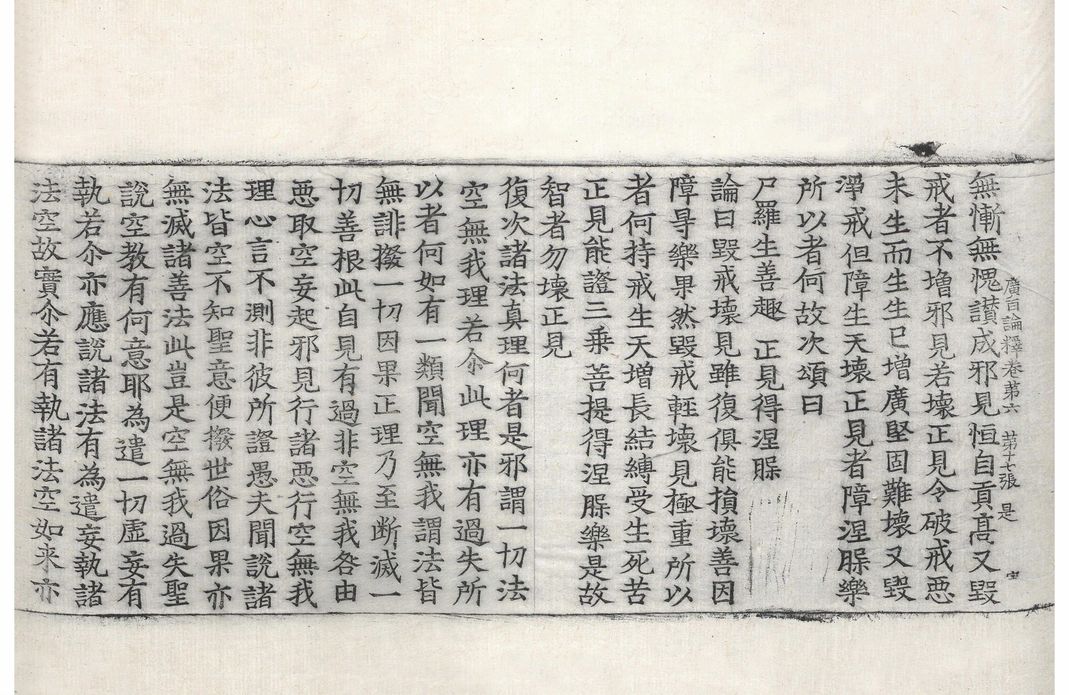 廣百論釋卷第六 第十七張 是
無慚無愧讃成邪見恒自貢髙又毀
戒者不增邪見若壞正見令破戒惡
未生而生生已增廣堅固難壞又毀
淨戒但障生天壞正見者障涅槃樂
所以者何故次頌曰
尸羅生善趣 正見得涅槃
論曰毀戒壞見雖復俱能損壞善因
障㝵樂果然毀戒輕壞見極重所以
者何持戒生天增長結縛受生死苦
正見能證三乘菩提得涅槃樂是故
智者勿壞正見
復次諸法真理何者是邪謂一切法
空無我理若尒此理亦有過失所
以者何如有一類聞空無我謂法皆
無誹撥一切因果正理乃至断滅一
切善根此自見有過非空無我咎由
惡取空妄起邪見行諸惡行空無我
理心言不測非彼所證愚夫聞說諸
法皆空不知聖意便撥世俗因果亦
無滅諸善法此豈是空無我過失聖
說空教有何意耶為遣一切虛妄有
執若尒亦應說諸法有為遣妄執諸
法空故實尒若有執諸法空如来亦